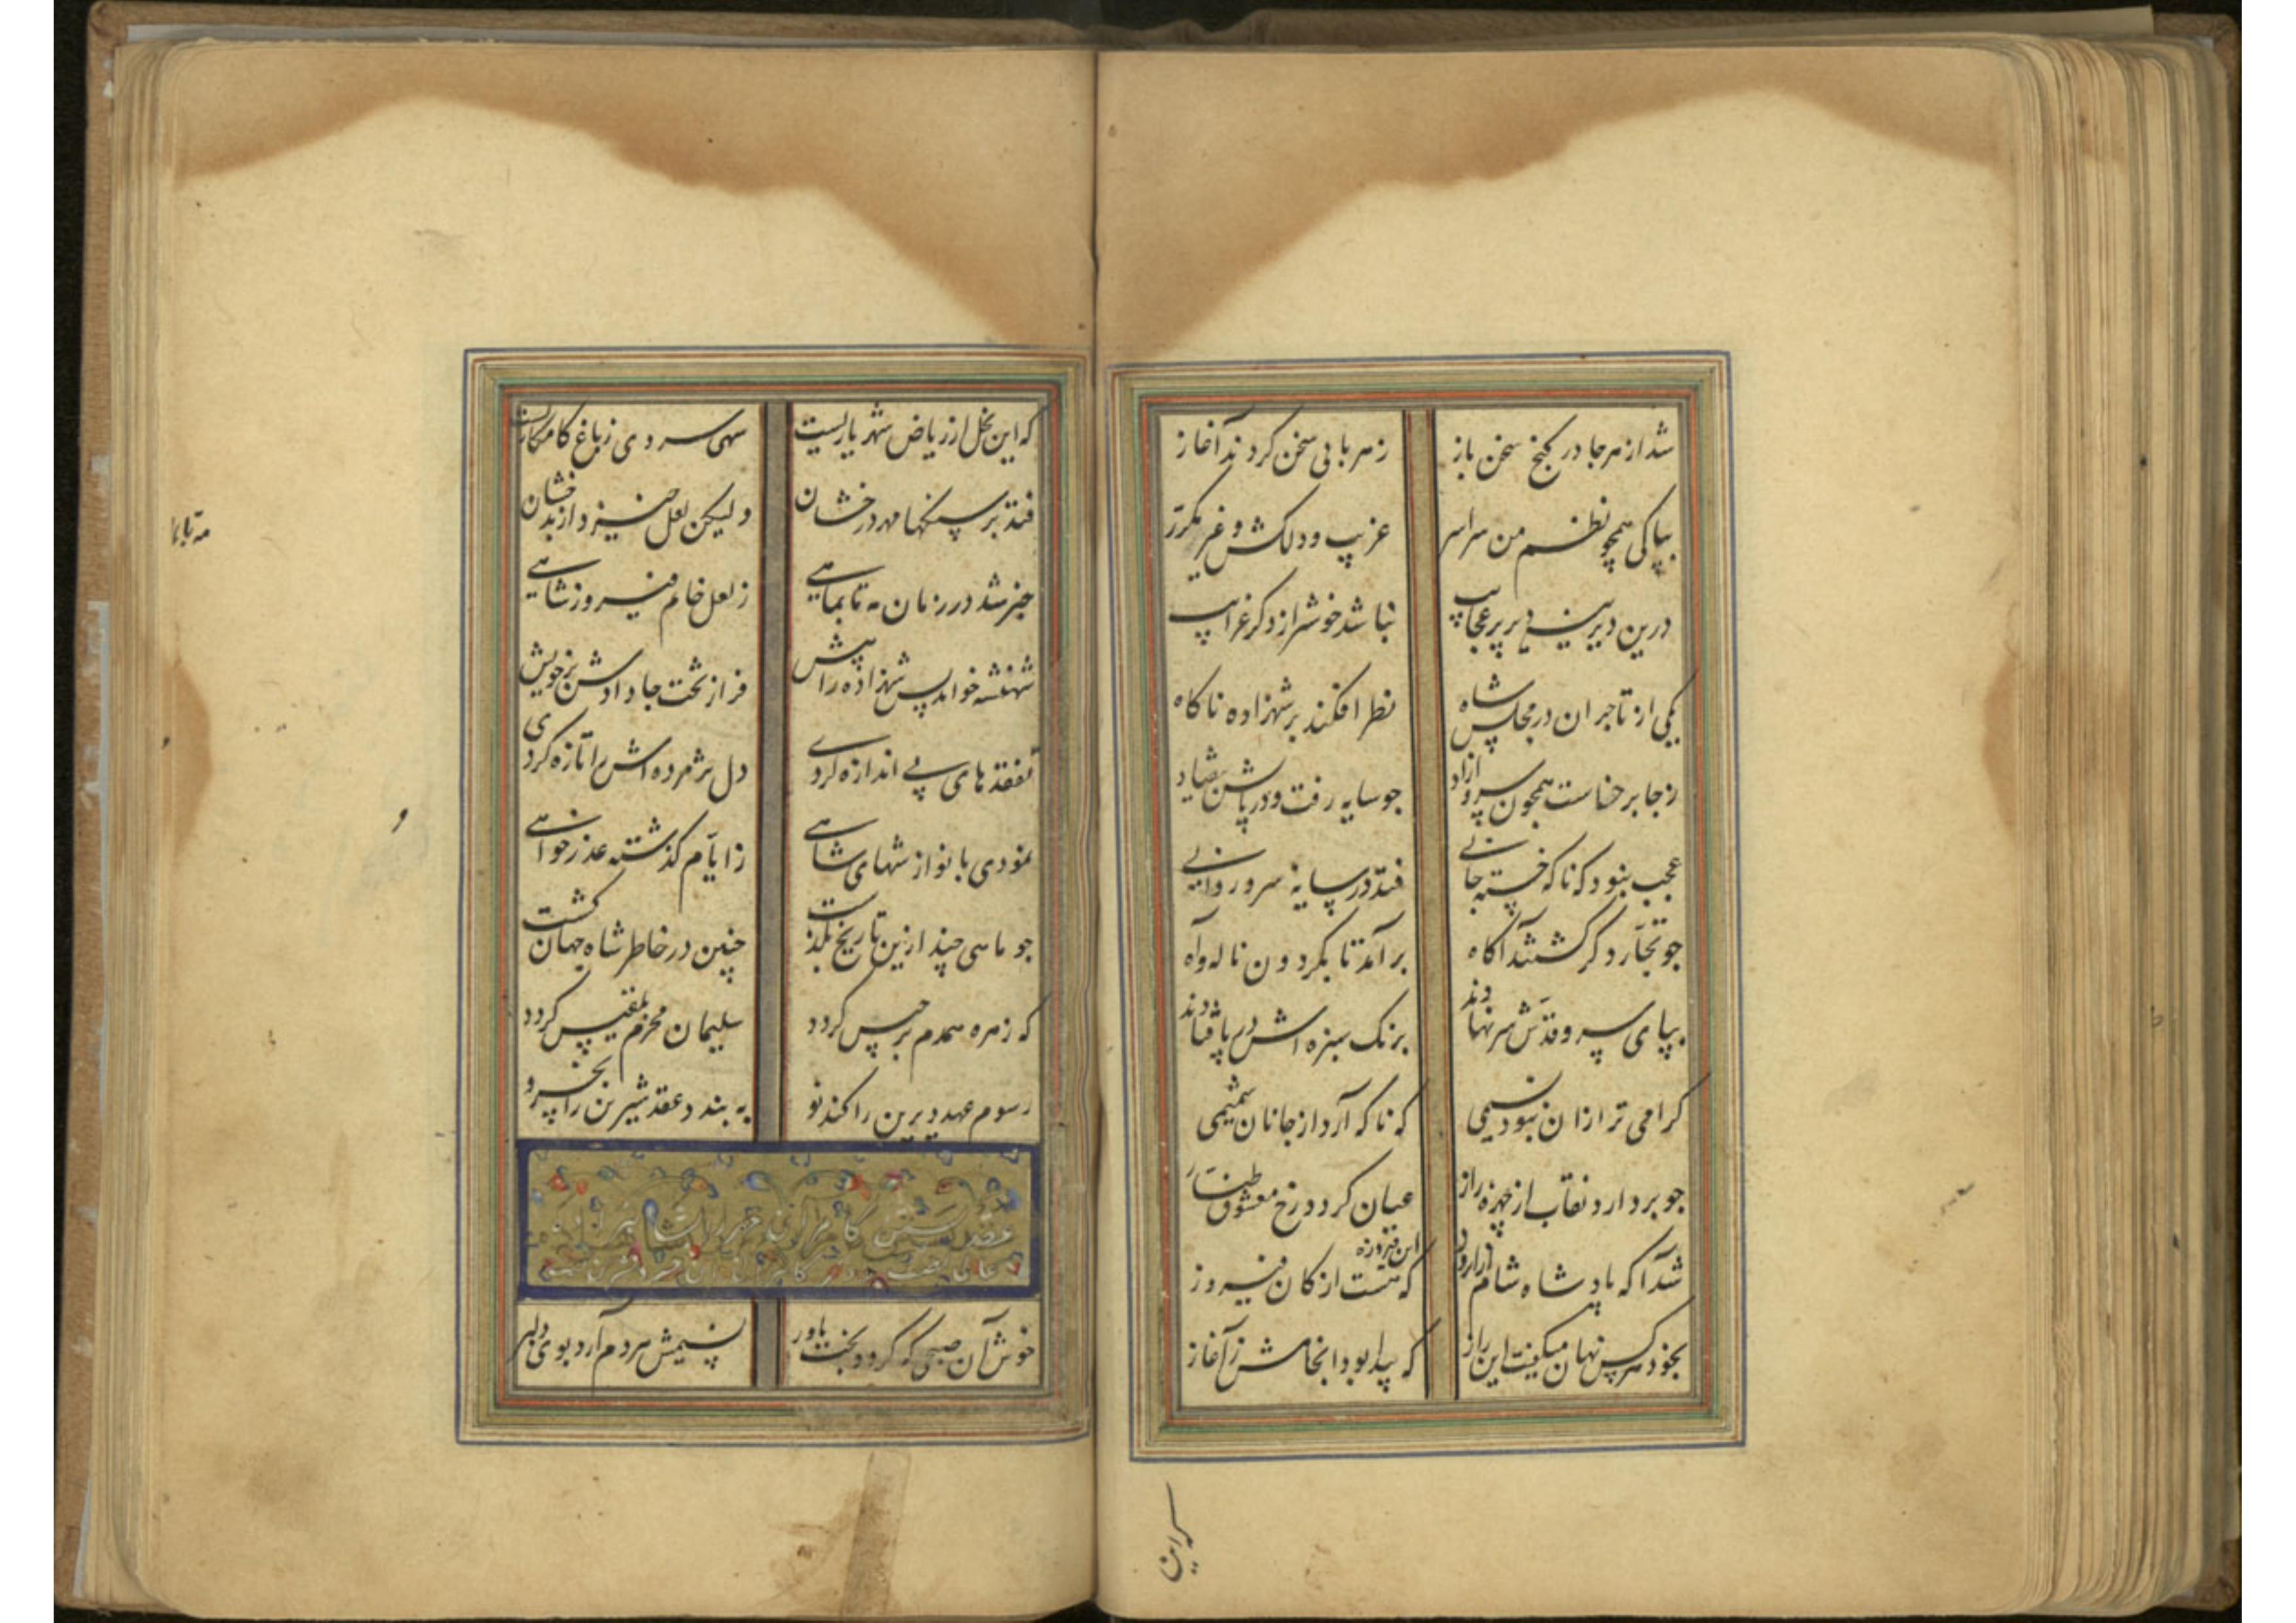 شد از هرجا در کنج سخن باز زهر بابی سخن کردند آغاز
بپاکی همچو نظم من سراسر غریب و دلکش و غیر مکرر
درین دیرینه دیر پر عجایب نباشد خوشتر از ذکر غرایب
یکی از تاجران در مجلس شاه نظر افکند بر شهزاده ناکاه
زجا برخاست همچون سرو آزاد جو سایه رفت و در پایش بیفتاد
عجب نبود که ناکه خسته جانی فتد در سایهٔ سرو روانی
جو تجّار دکر کشتند آکاه برآمد تا بکردون ناله و آه
بپای سرو قدّش سر نهادند برنک سبزه اش در پا فتادند
کرامی تر ازان نبود نسیمی که ناکه آرد از جانان شمیمی
جو بردارد نقاب از چهره راز عیان کردد رخ معشوق طناز
شد آکه پادشاه شام که هست از کان فیروز این فیروزه
بخود هرکس نهان میکفت این راز که پیدا بود انجامش ز آغاز
که این
که این نخل از ریاض شهریاریست سهی سروی زباغ کامکاریست
فتد بر سنکها مهر درخشان ولیکن لعل خیزد از بدخشان
خبر شد در زمان مه تا بماهی ز لعل خام فیروز شاهی
شهنشه خواند پس شهزاده را پیش فراز تخت جا دادش بر خویش
تفقدهای بی اندازه کردی دل پژمرده اش را تازه کردی
نمودی با نوازشهای شاهی ز ایّام کذشته عذرخواهی
جو ماهی چند ازین تاریخ بکذشت چنین در خاطر شاه جهان کشت
که زهره همدم برجیس کردد سلیمان محرم بلقیس کردد
رسوم عهد دیرین را کند نو به بندد عقد شیرین را بخسرو
عقد بستن کامرانی
خوش آن صبحی که کردد بخت یاور نسیمش هردم آرد بوی دلبر
مه تابما
و